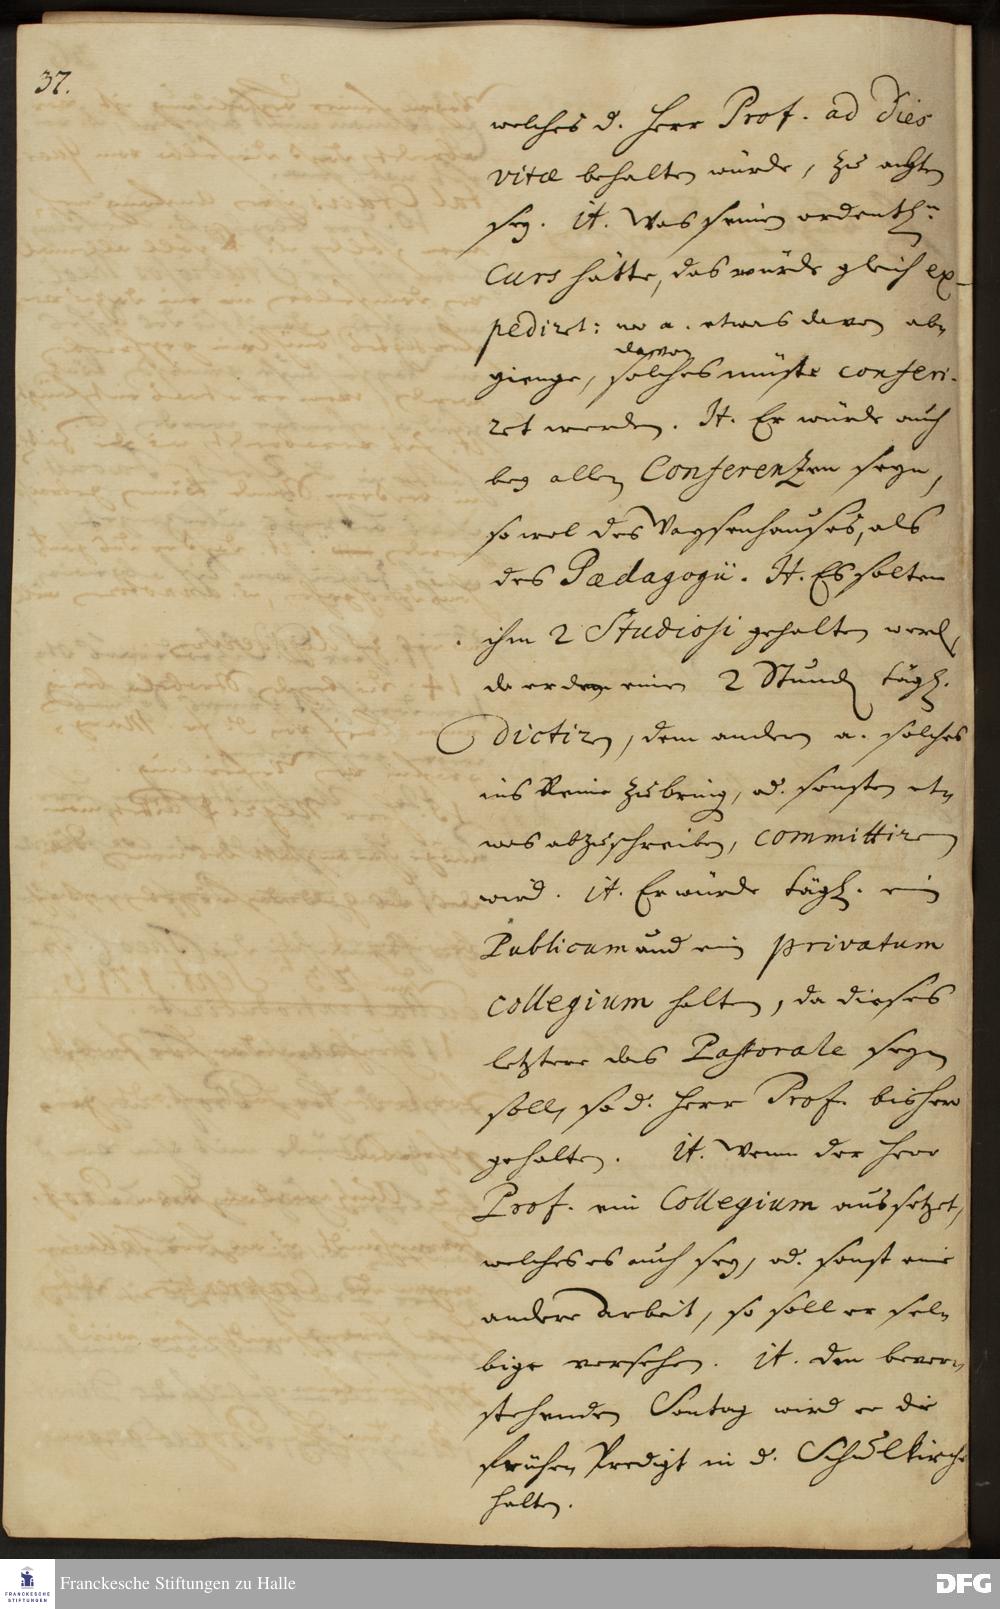 37.
welches d. Herr Prof. ad dies
vitæ behalten würde, zu achten
sey. it. Was seinen ordentl.n
Curs hätte, das würde gleich ex-
pediret: wo a. etwas davon ab-
gienge, solches müste conferi-
davon
ret werden. It. Er würde auch
bey allen Conferenzen seyn,
so wol des Waysenhauses, als
des Pædagogii. It. Es solten
ihm 2 Studiosi gehalten werd,
da er dem einen 2 Stund tägl.
dictiren, dem andern a. solches
ins Reine zu bring, od. sonsten et-
was abzuschreiben, committiren
wird. it. Er würde tägl. ein
Publicum und ein privatum
collegium halten, da dieses
letztere das Pastorale seyn
soll, so d. Herr Prof. bisher
gehalten. it. Wenn der Herr
Prof. ein Collegium aussetzet,
welches es auch sey, od. sonst eine
andere Arbeit, so soll er sel-
bige versehen. it. den bevor-
stehenden Sontag wird er die
frühen Predigt in d. Schulkirche
halten.
FRANCKESCHE
STIFTUNGEN
Franckesche Stiftungen zu Halle
DFG